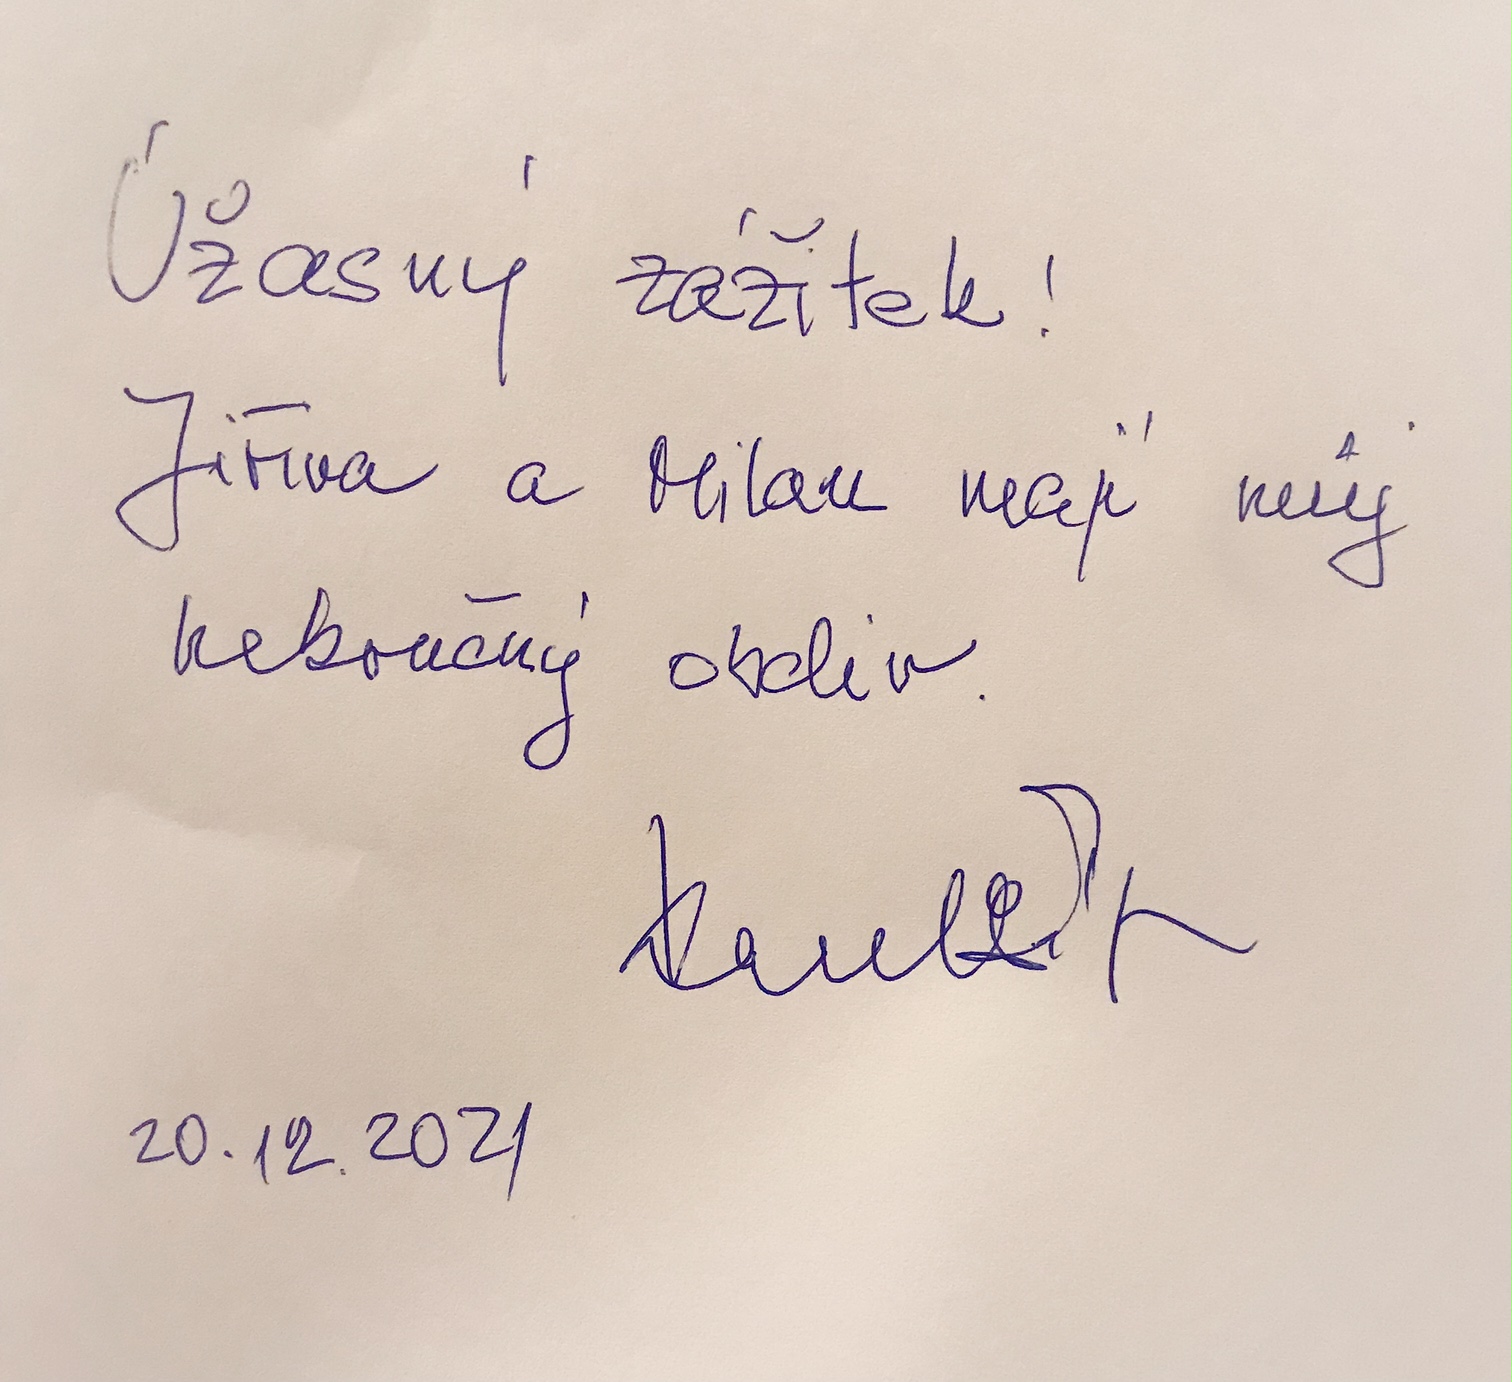 Úžasný zážitek!
Jiřina a Milan mají můj
nekonečný obdiv.
20.12.2021